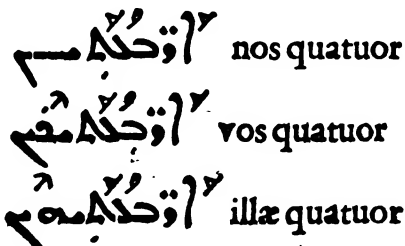 ܐܪ̈ܒܥܬܝܢ nos quatuor
ܐܪ̈ܒܥܬܝܟܝܢ vos quatuor
ܐܪ̈ܒܥܬܝܗܝܢ illæ quatuor